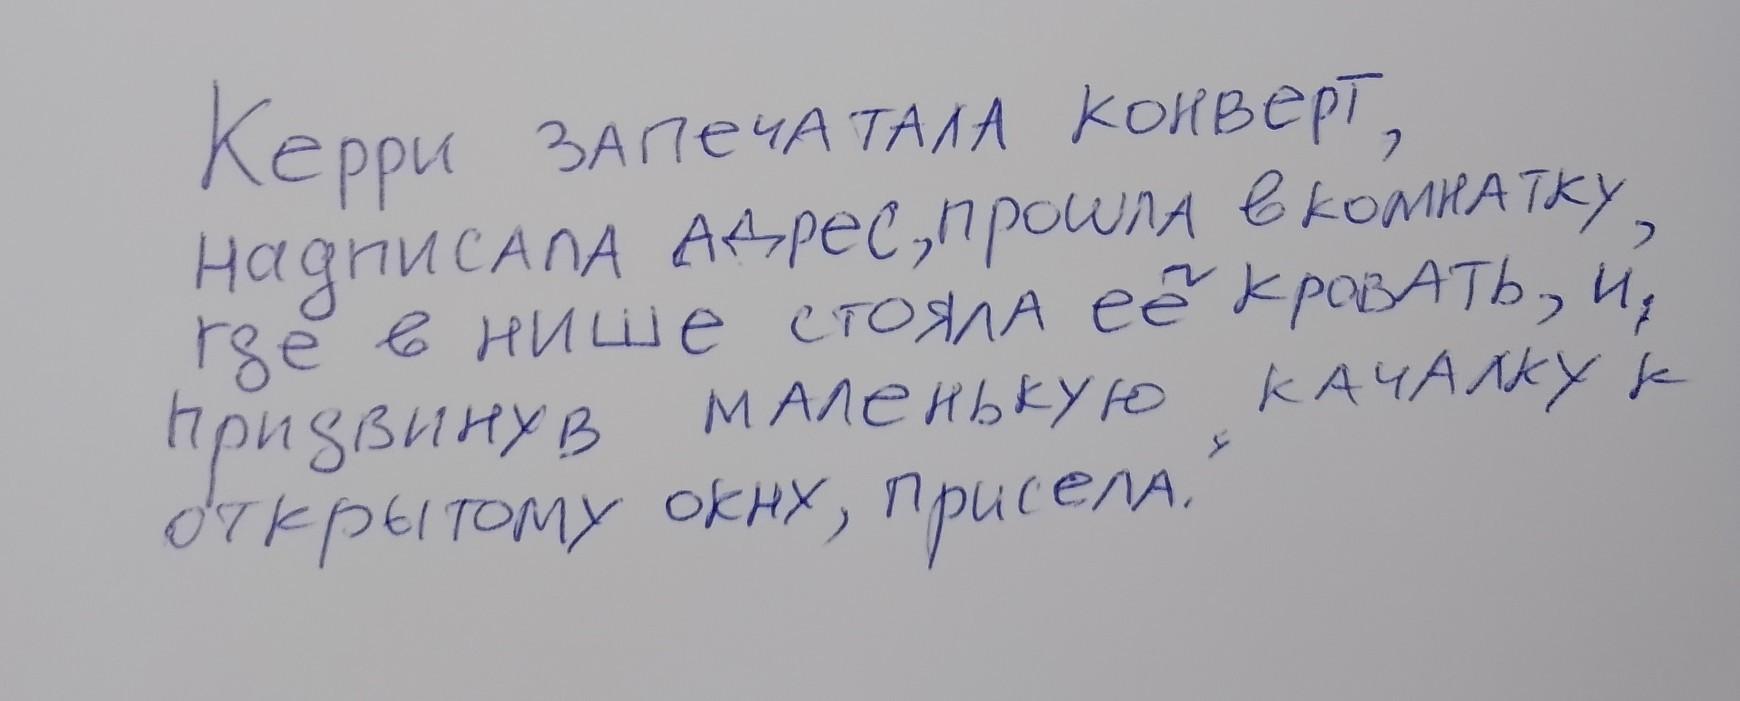 Керри запечатала конверт,
надписала адрес, прошла в комнатку,
где в нише стояла её кровать, и,
придвинув маленькую качалку к
открытому окну, присела.